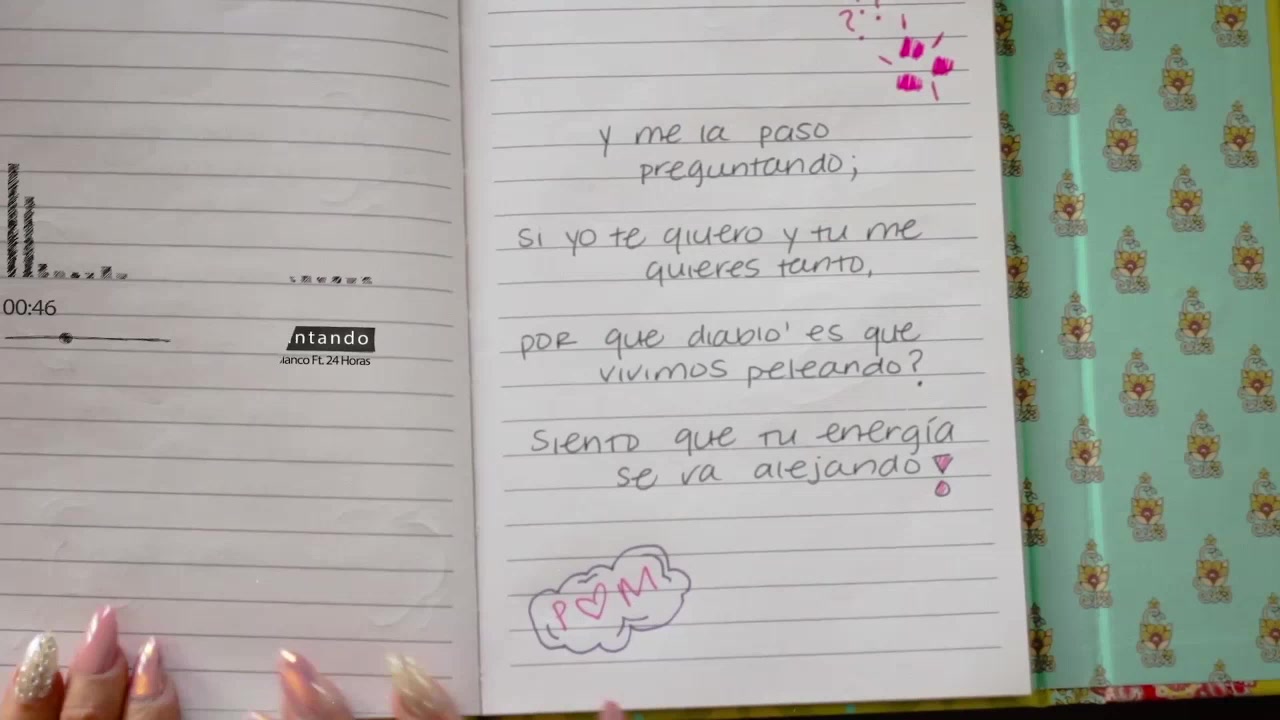 00:46
ntando
lanco Ft. 24 Horas
?
Y me la paso
preguntando;
si yo te quero y tu me
quieres tanto,
por que diablo' es que
vivimos peleando?
siento que tu energía
se va alejando!
P♡M